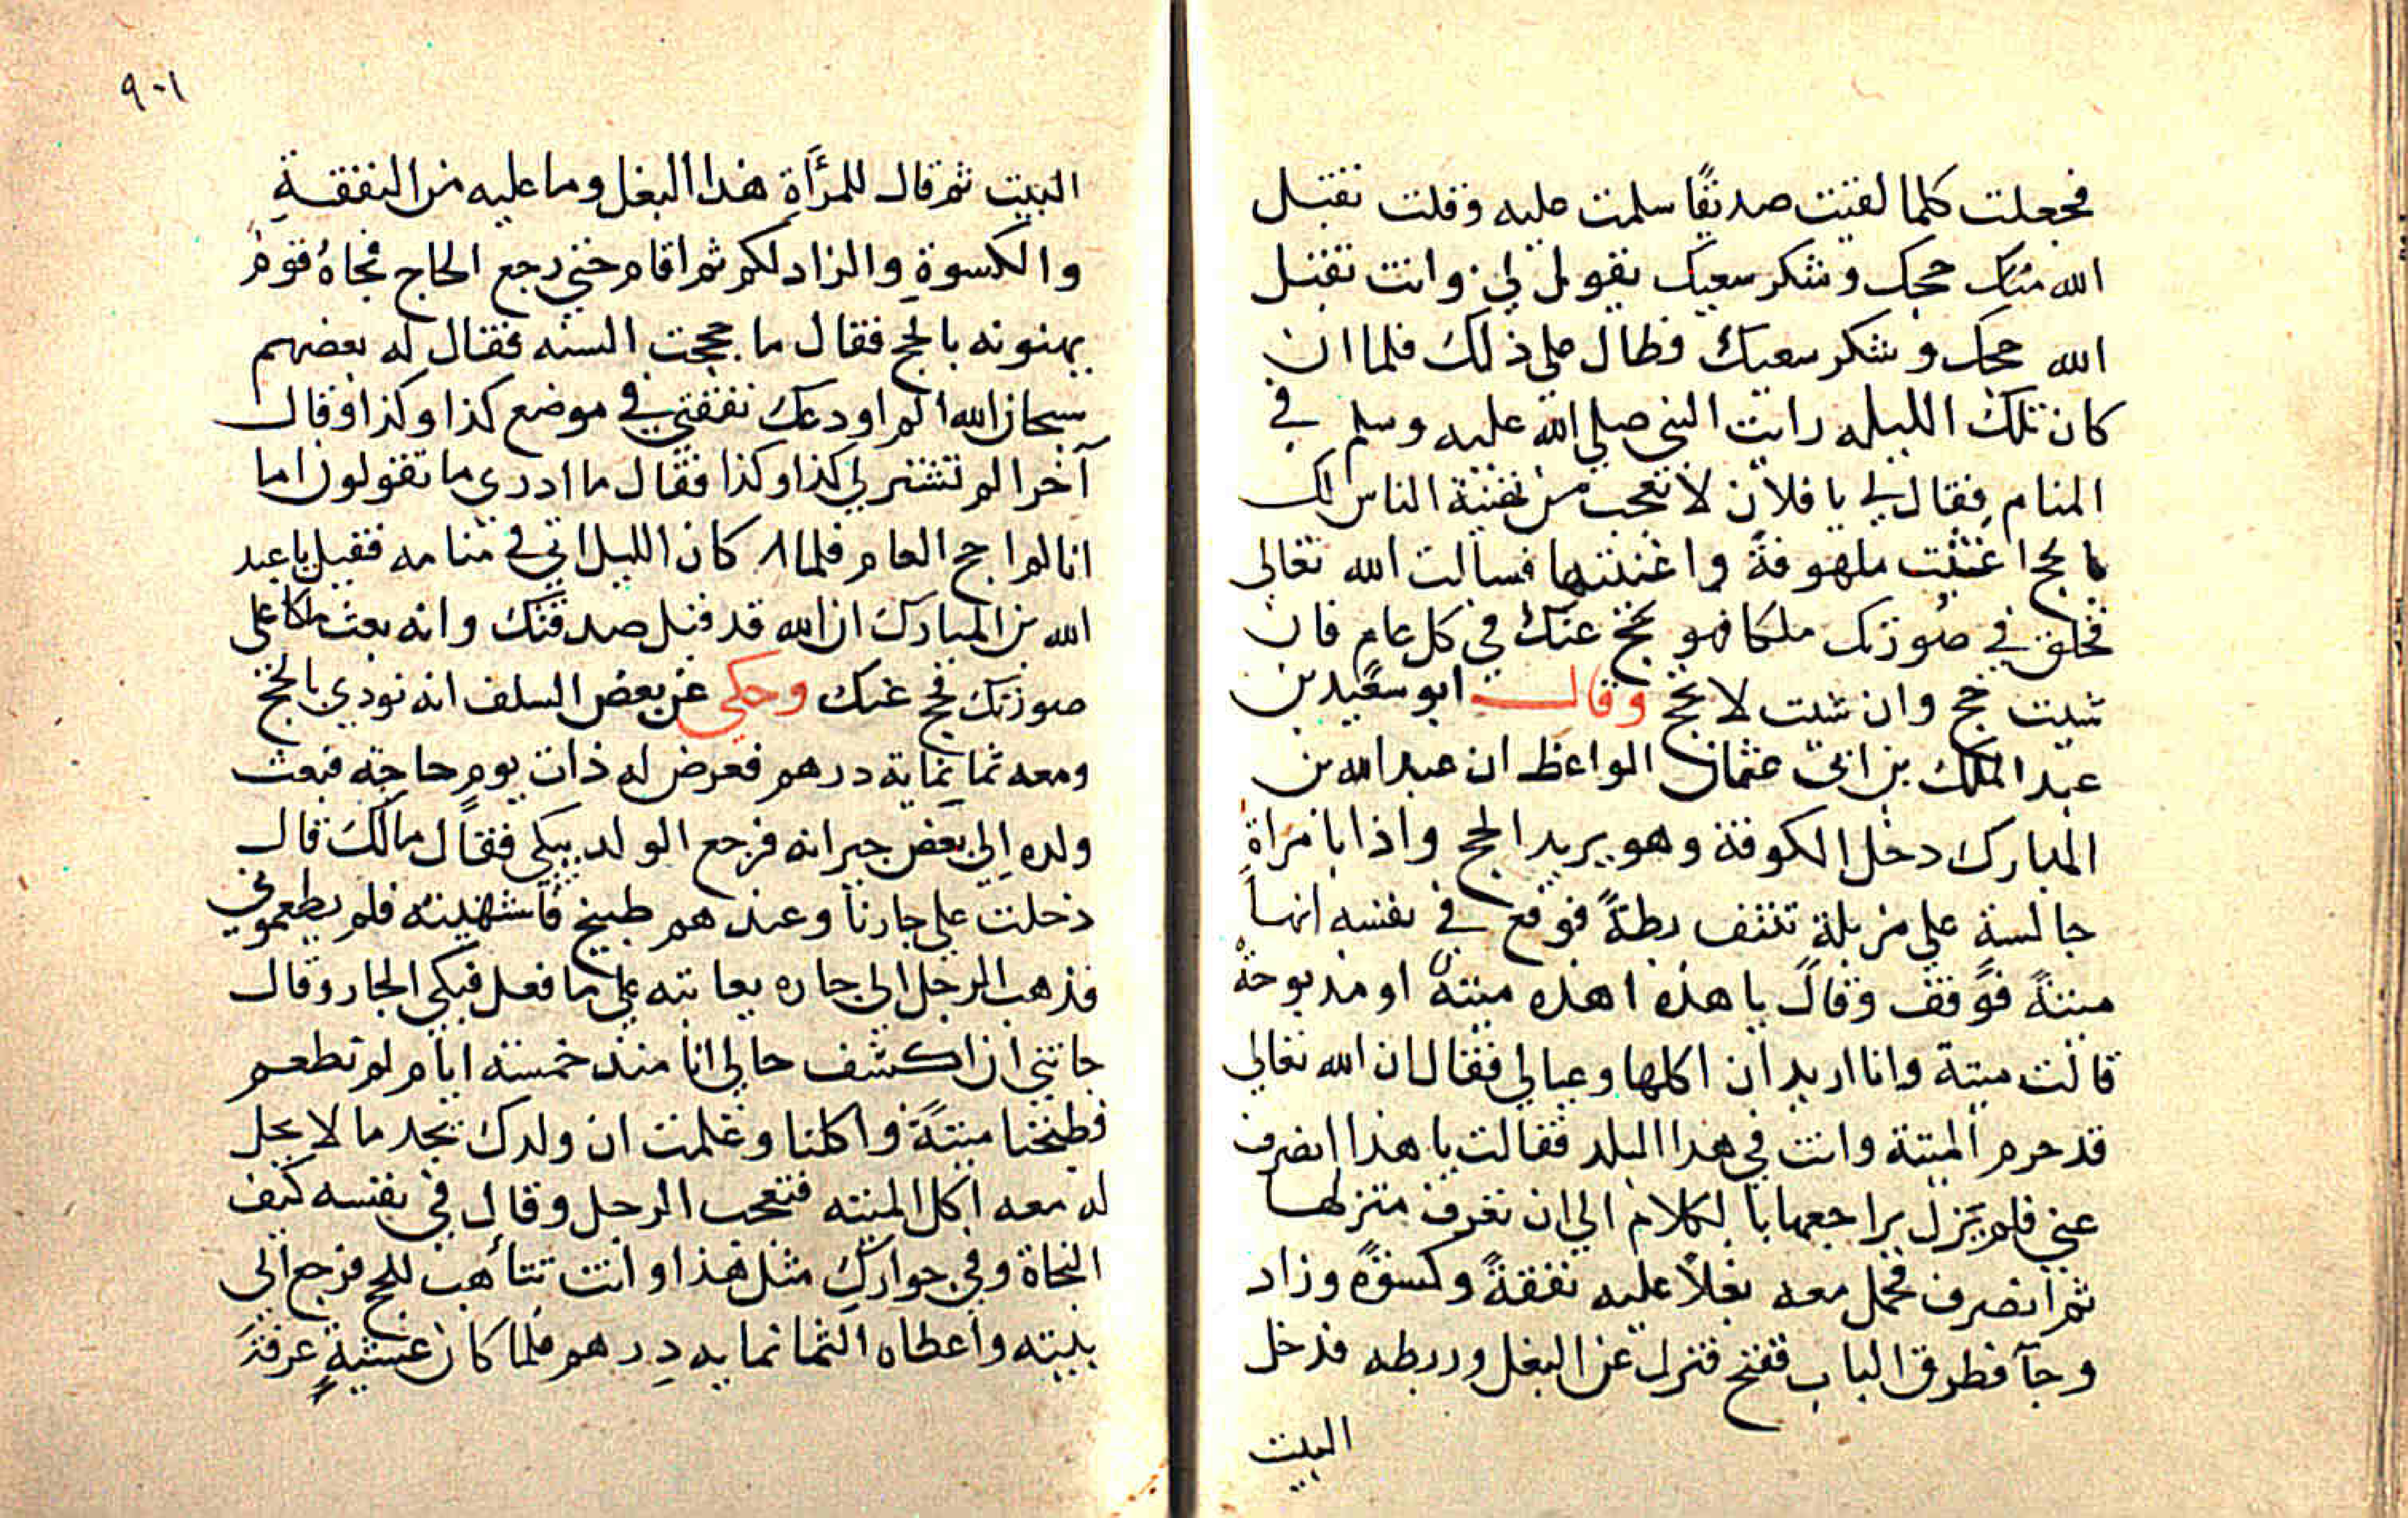 فجعلت كلما لقيت صديقًا سلمت عليه وقلت تقبل
الله منك حجك وشكر سعيك يقول لي وانت تقبل
الله حجك وشكر سعيك فطال علي ذلك فلما ان
كان تلك الليله رايت النبي صلي الله عليه وسلم في
المنام فقال لي يا فلان لا تعجب من تهنية الناس لك
بالحج اغثت ملهوفةً واغنيتها فسالت الله تعالى
فخلق في صورتك ملكا فهو يحج عنك في كل عام فان
شيت حج وان شيت لا تحج وقال ابو سعيد بن
عبد الملك بن ابي عثمان الواعظ ان عبد الله بن
المبارك دخل الكوفة وهو يريد الحج واذا بامراة
جالسة علي مزبلة تنتف بطةً فوقع في نفسه انها
ميتةً فوقف وقال يا هذه اهذه ميتة او مذبوحة
قالت ميتة وانا اريد ان اكلها وعيالي فقال ان الله تعالي
قد حرم الميتة وانت في هذا البلد فقالت يا هذا انصرف
عني فلم يزل يراجعها بالكلام الي ان تعرف منزلها
ثم انصرف فحمل معه بغلًا عليه نفقةً وكسوةً وزاد
وجآ فطرق الباب ففتح فنزل عن البغل وربطه فدخل
البيت
٩٠١
البيت ثم قال للمرأة هذا البغل وما عليه من النفقة
والكسوة والزاد لكم ثم اقام حتي رجع الحاج فجاه قوم
يهنونه بالحج فقال ما حججت السنه فقال له بعضهم
سبحان الله الم اودعك نفقتي في موضع كذا وكذا وقال
آخر الم تشتر لي كذا وكذا فقال ما ادري ما تقولون اما
انا لم احج العام فلما كان الليل اتي في منامه فقيل يا عبد
الله بن المبارك ان الله قد قبل صدقتك وانه بعث ملكا على
صورتك فحج عنك وحكي عن بعض السلف انه نودي بالحج
ومعه ثمانماية درهم فعرض له ذات يوم حاجة فبعث
ولده الي بعض جيرانه فرجع الولد يبكي فقال مالك قال
دخلت علي جارنا وعندهم طبيخ فاشتهيته فلم يطعموني
فذهب الرجل الي جاره يعاتبه علي ما فعل فبكي الجار وقال
جاتني ان اكشف حالي انا منذ خمسة ايام لم نطعم
فطبخنا ميتةً واكلنا وعلمت ان ولدك يجد ما لا يحل
له معه اكل الميته فتعجب الرجل وقال في نفسه كيف
النجاة وفي جوارك مثل هذا وانت تتأهب للحج فرجع الي
بيته واعطاه الثمانمايه درهم فلما كان عشية عرفة